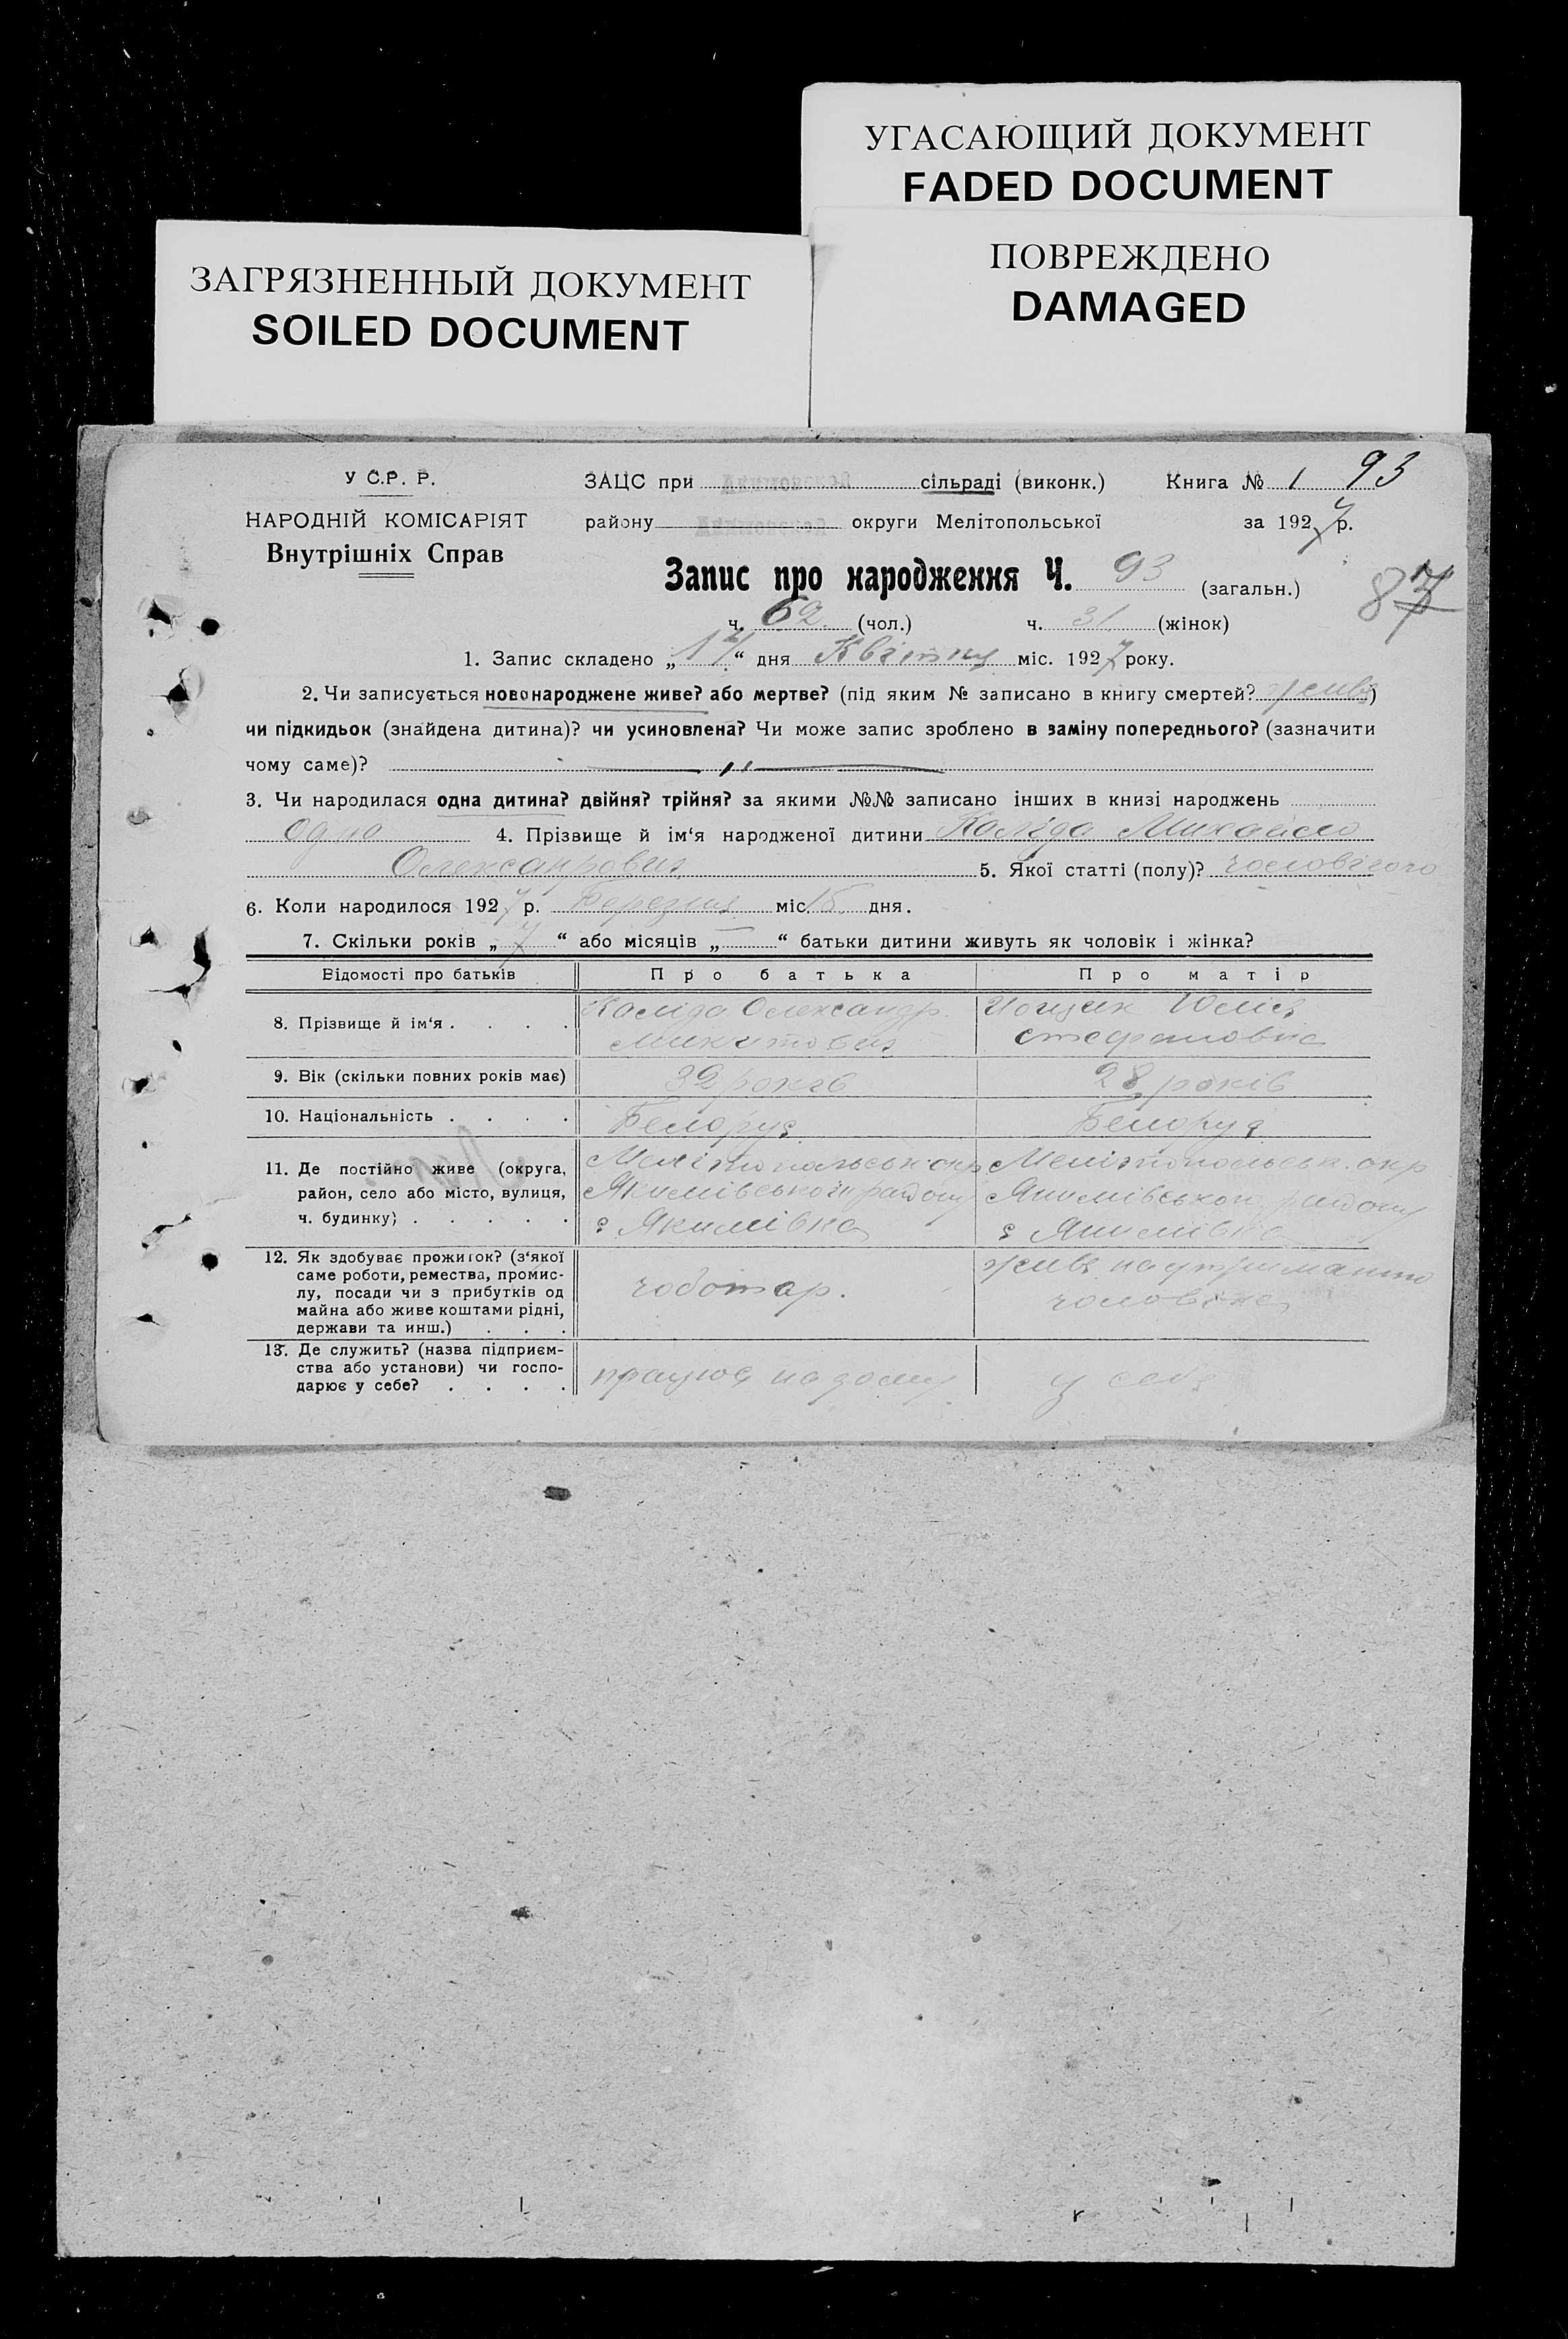 УГАСАЮЩИЙ ДОКУМЕНТ
FADED DOCUMENT
ПОВРЕЖДЕНО
DAMAGED
ЗАГРЯЗНЕННЫЙ ДОКУМЕНТ
SOILED DOCUMENT
У С.Р. Р.
НАРОДНІЙ КОМІСАРІЯТ
Внутрішніх Справ
ЗАЦС при сільраді (виконк.) Книга № 1 93
району округи Мелітопольської за 1927 р.
Запис про народження Ч. 93 (загальн.)
87
ч. 62 (чол.) ч. 31 (жінок)
1. Запис складено „17“ дня Квітня міс. 1927 року.
2. Чи записується новонароджене живе? або мертве? (під яким № записано в книгу смертей? живе)
чи підкидьок (знайдена дитина)? чи усиновлена? Чи може запис зроблено в заміну попереднього? (зазначити
чому саме)? „
3. Чи народилася одна дитина? двійня? трійня? за якими №№ записано інших в книзі народжень
одно 4. Прізвище й ім‘я народженої дитини Каліда Михайло
Олександрович 5. Якої статті (полу)? чоловічого
6. Коли народилося 1927 р. Березня міс. 15 дня.
7. Скільки років „7“ або місяців „—“ батьки дитини живуть як чоловік і жінка?
Відомості про батьків Про батька Про матір
8. Прізвище й ім‘я . . . . Каліда Олександр Юлія
Микитович Стефановна
9. Вік (скільки повних років має) 32 років 28 років
10. Національність . . . . Белорус Белорус
11. Де постійно живе (округа, Мелітопольськ окр Мелітопольськ. окр
район, село або місто, вулиця, Якимівського району Якимівськог району
ч. будинку) . . . . . с Якимівка с Якимівка
12. Як здобуває прожиток? (з‘якої
саме роботи, ремества, промис-
лу, посади чи з прибутків од
майна або живе коштами рідні,
держави та инш.) . . .
чоботар.
живе на утриманню
чоловіка
13. Де служить? (назва підприєм-
ства або установи) чи госпо-
дарює у себе? . . . .
працює на дому
у себе